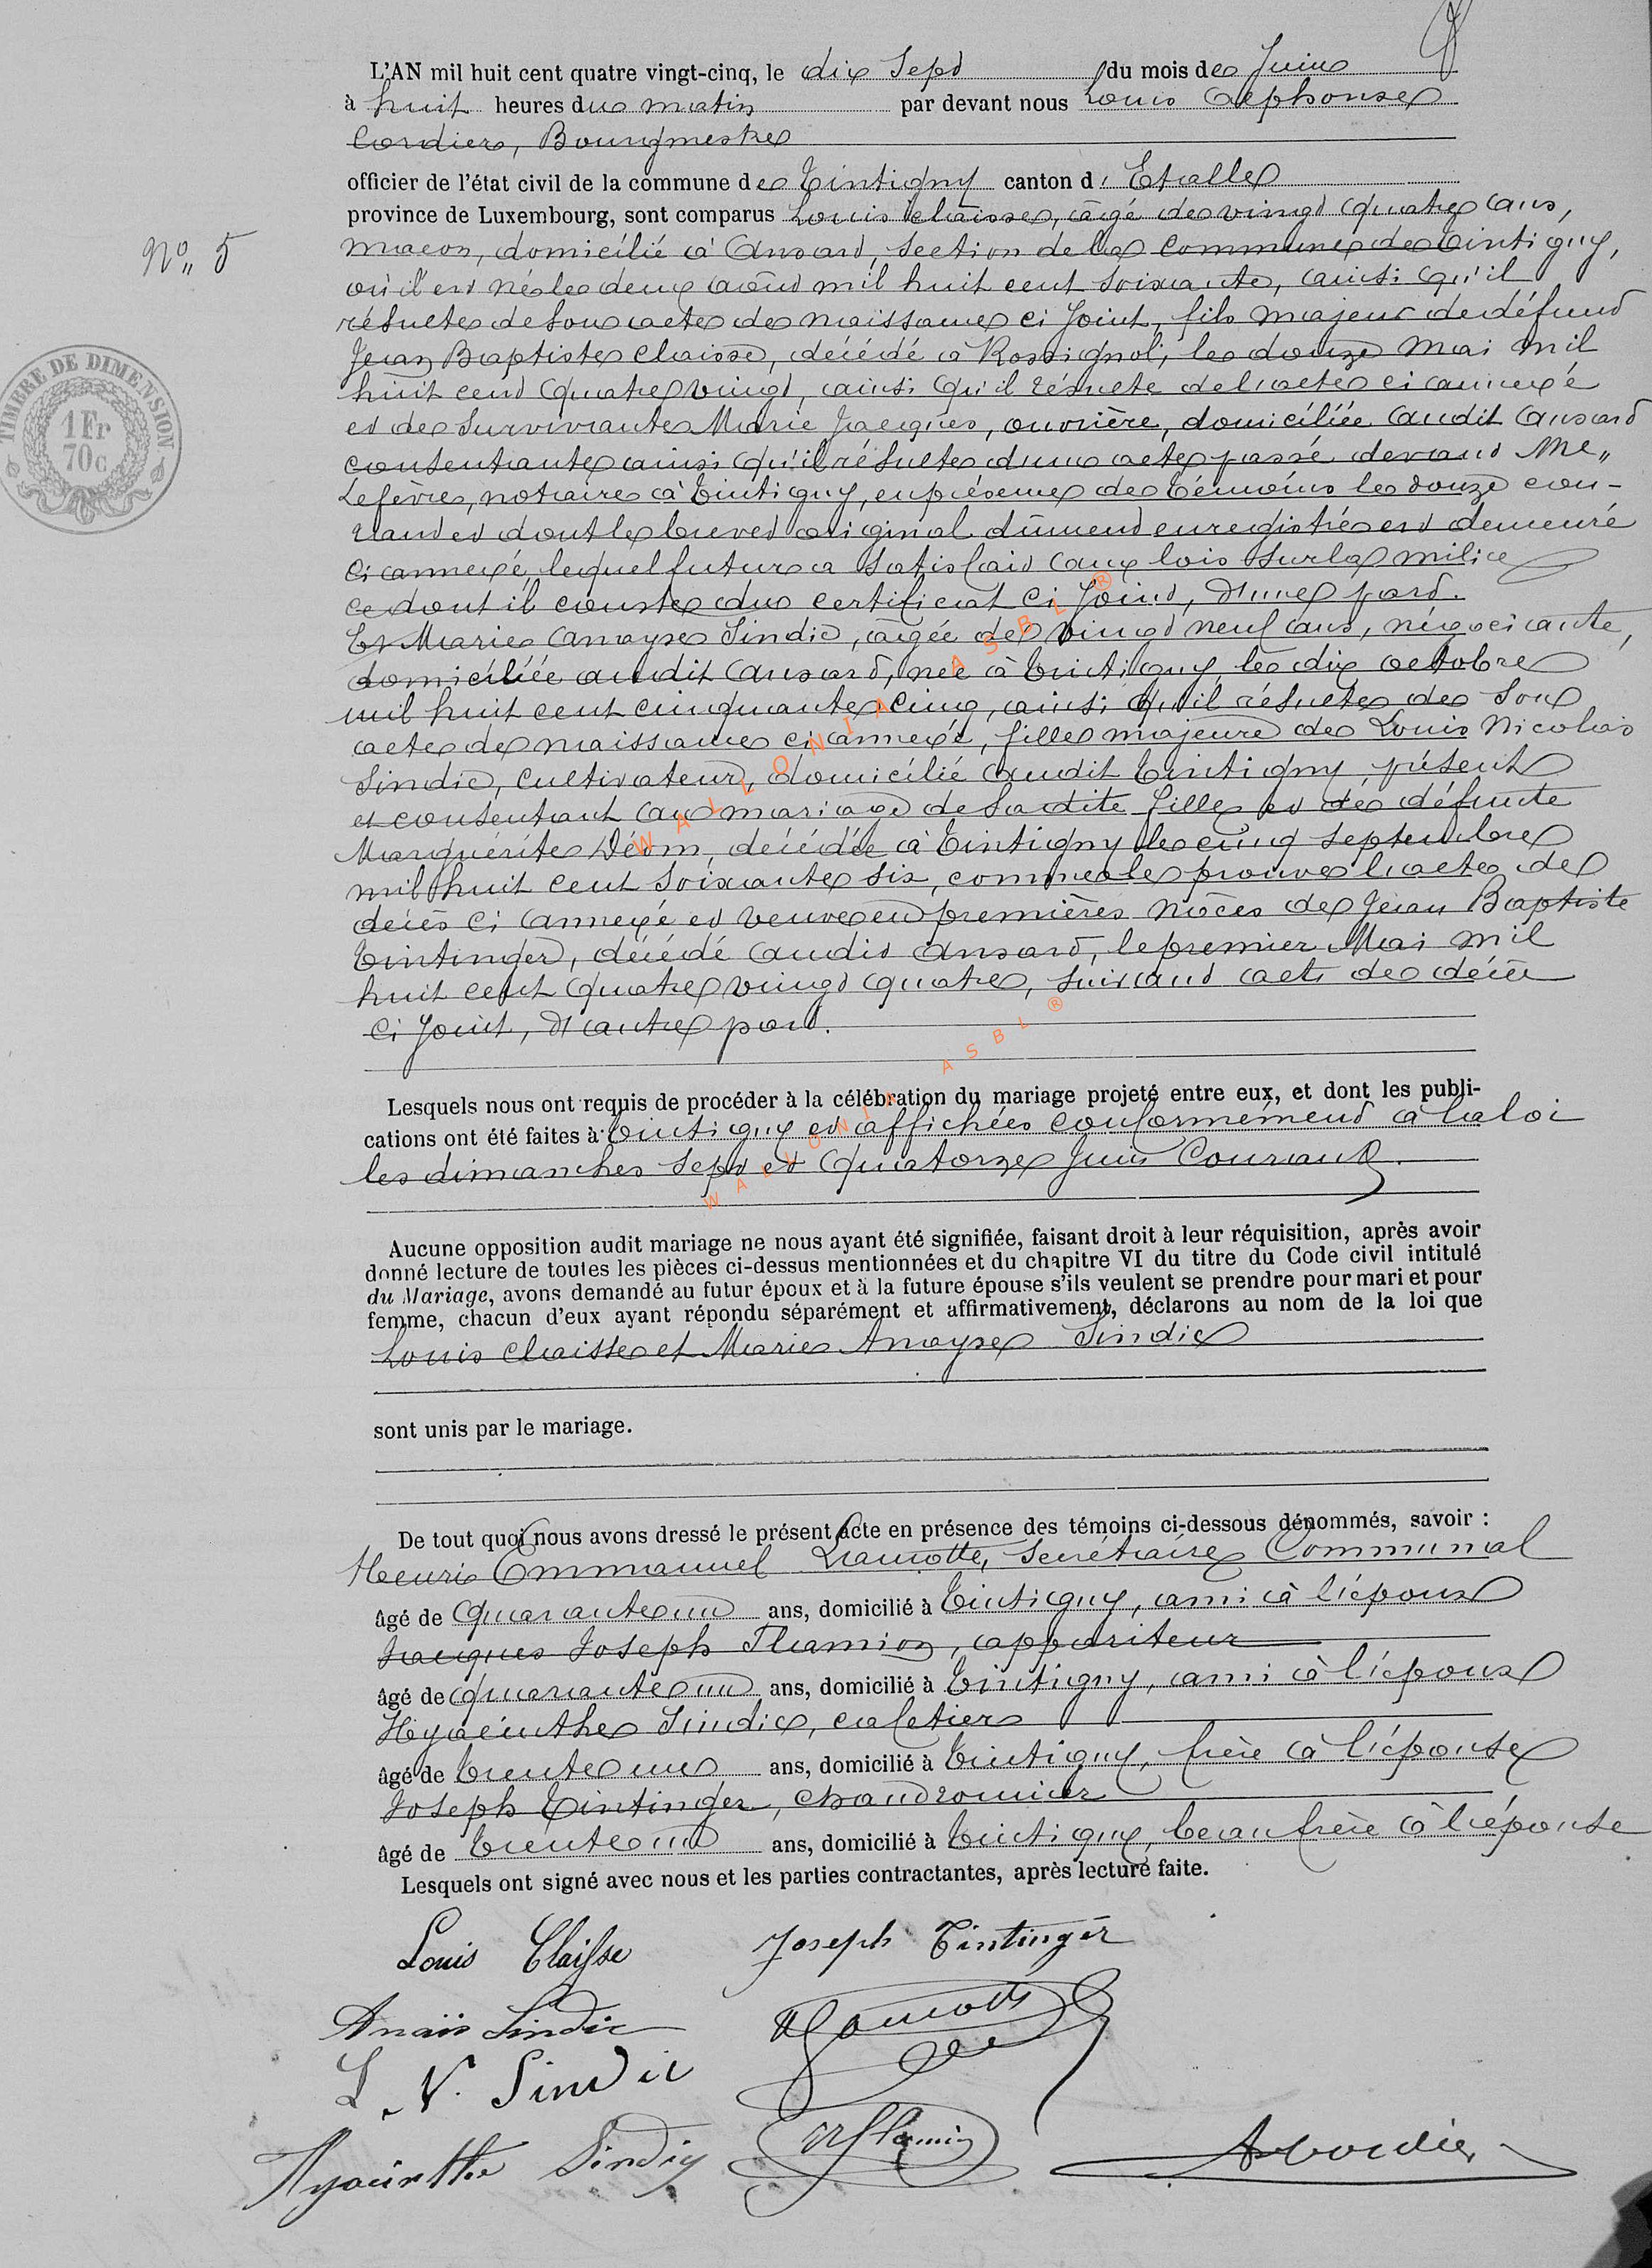 L'AN mil huit cent quatre vingt-cinq, le dix Sept du mois de Juin
à huit heures du matin par devant nous Louis Alphonse
Cordier, Bourgmestre
officier de l'état civil de la commune de Tintigny canton d'Etalle
province de Luxembourg, sont comparus Louis Claisse, âgé de vingt quatre ans,
N° 5
macon, domicilié à Ansart, section de la commune de Tintigny,
où il est né le deux août mil huit cent soixante, ainsi qu'il
résulte de son acte de naissance ci joint, fils majeur de défunt
Jean Baptiste Claisse, décédé à Rossignol, le douze Mai mil
huit cent quatre vingt, ainsi qu'il résulte de l'acte ci annexé
et de survivante Marie Jacques, ouvrière, domiciliée audit Ansart
consentante ainsi qu'il résulte d'un acte passé devant Me
Lefèvre, notaire à Tintigny, en présence de témoins le douze cou-
rant et dont le brevet original dûment enregistré est demeuré
ci annexé, lequel futur a satisfait aux lois sur la milice
ce dont il conste du certificat ci joint, d'une part.
Et Marie Anayse Sindic, âgée de vingt neuf ans, négociante,
domiciliée audit Ansart, née à Tintigny, le dix octobre
mil huit cent cinquante cinq, ainsi qu'il résulte de son
acte de naissance ci annexé, fille majeure de Louis Nicolas
Sindic, cultivateur, domicilié audit Tintigny, présent
et consentant au mariage de sa dite fille et de défunte
Marguérite Déom, décédée à Tintigny le cinq septembre
mil huit cent soixante six, comme le prouve l'acte de
décès ci annexé et veuve en premières nôces de Jean Baptiste
Tintinger, décédé audit Ansart, le premier Mai mil
huit cent quatre vingt quatre, suivant acte de décès
ci joint, d'autre part.
Lesquels nous ont requis de procéder à la célébration du mariage projeté entre eux, et dont les publi-
cations ont été faites à Tintigny et affichées conformément à la loi
les dimanches sept et quatorze Juin Courant.
Aucune opposition audit mariage ne nous ayant été signifiée, faisant droit à leur réquisition, après avoir
donné lecture de toutes les pièces ci-dessus mentionnées et du chapitre VI du titre du Code civil intitulé
du Mariage, avons demandé au futur époux et à la future épouse s'ils veulent se prendre pour mari et pour
femme, chacun d'eux ayant répondu séparément et affirmativement, déclarons au nom de la loi que
Louis Claisse et Marie Anayse Sindic
sont unis par le mariage.
De tout quoi nous avons dressé le présent acte en présence des témoins ci-dessous dénommés, savoir :
Henri Emmanuel Lamotte, Secrétaire Communal
âgé de quarante un ans, domicilié à Tintigny, ami à l'époux
Jacques Joseph Flamion, appariteur
âgé de quarante un ans, domicilié à Tintigny, ami à l'époux
Hyacinthe Sindic, cafetier
âgé de trente un ans, domicilié à Tintigny, frère à l'épouse
Joseph Tintinger, chaudronnier
âgé de trente un ans, domicilié à Tintigny, beau frère à l'épouse
Lesquels ont signé avec nous et les parties contractantes, après lecture faite.
Louis Claisse Joseph Tintinger
Anaïs Sindic Lamotte
L. N. Sindic
Hyacinthe Sindic Flamion A Cordier
TIMBRE DE DIMENSION
1 Fr
70c
WALLONIA ASBL ®
WALLONIA ASBL ®